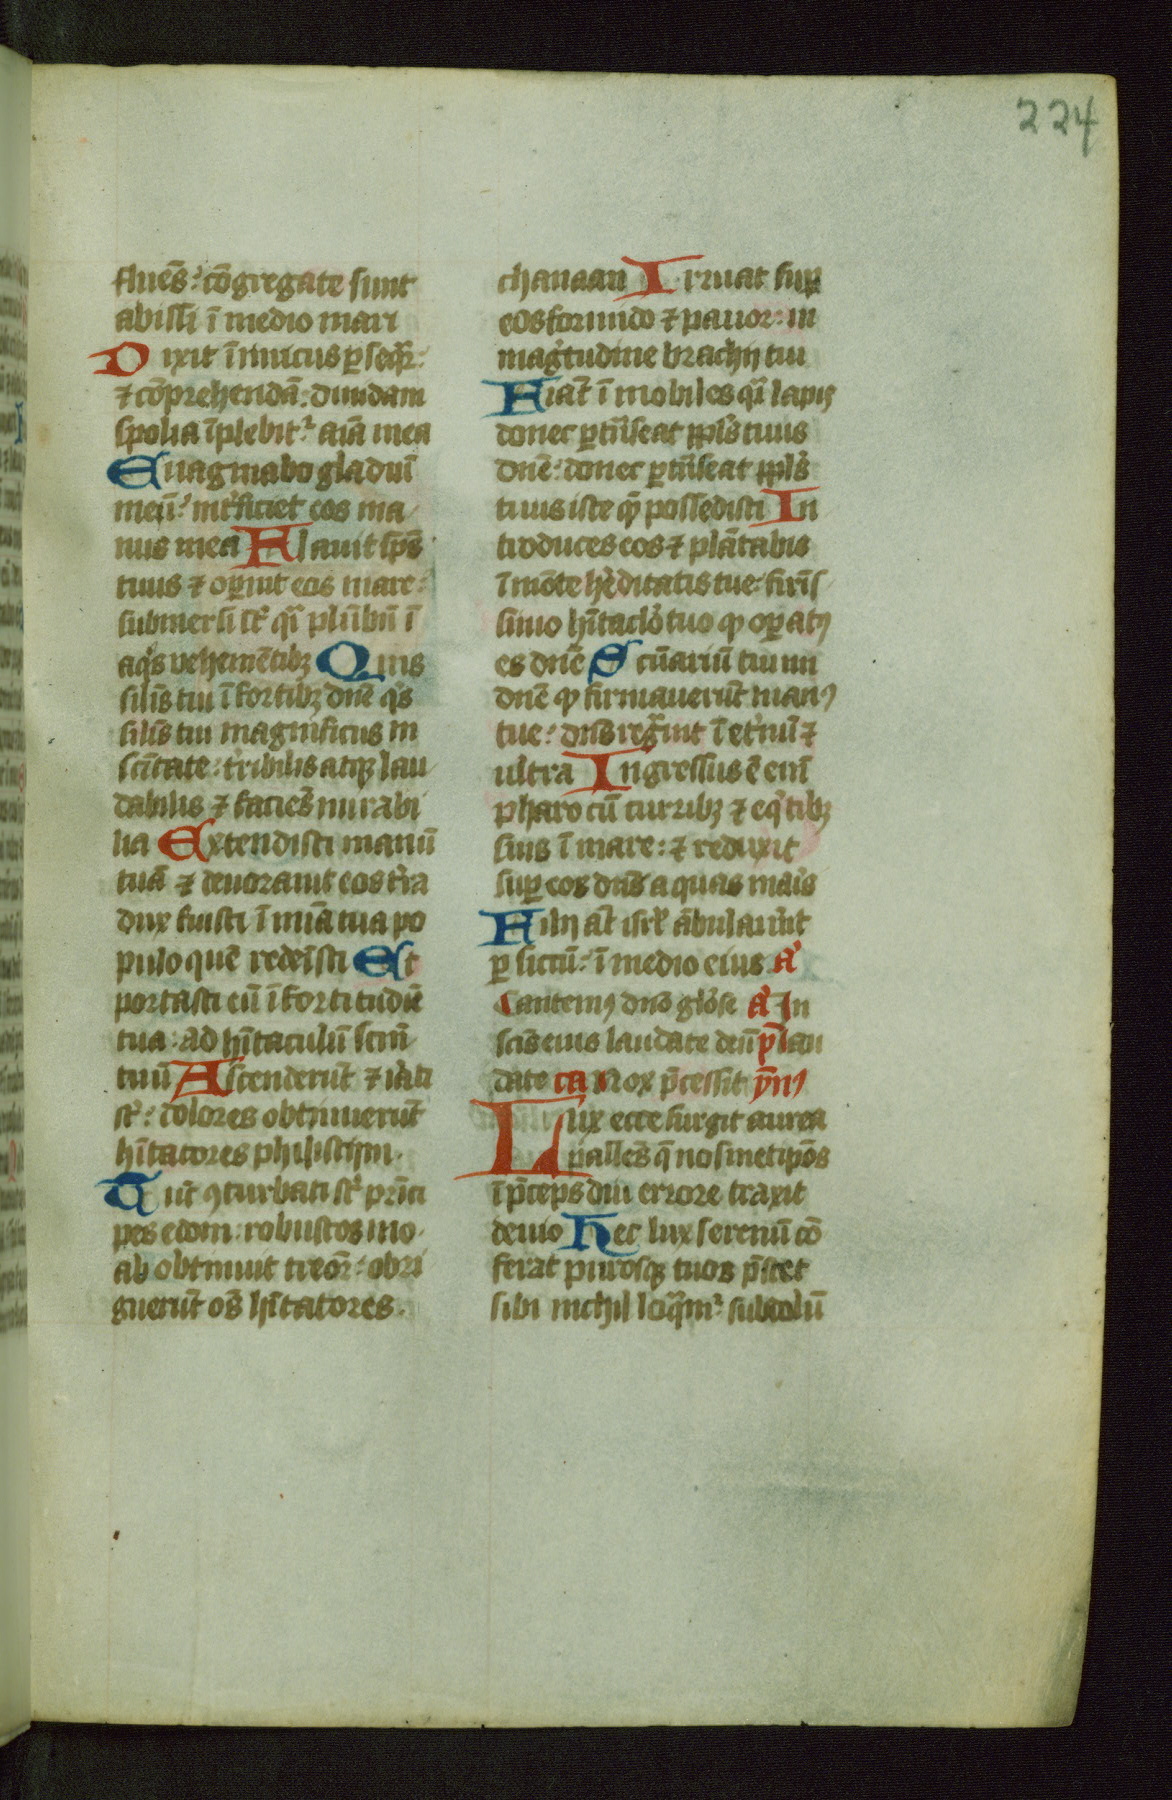 224
fluēs: cōgregate sunt
abissi ī medio mari
Dixit inimicus p̱seqr̄:
⁊ cōprehendā: diuidam
spolia īplebit᷑ aīa mea
Euaginabo gladiuī
meū: int̓ficiet eos ma
nus mea Flauit sps̄
tuus ⁊ op̱uit eos mare:
submersi st̄ qī plūbū ī
aqͥs vehemētibꝫ Quis
silīs tui ī fortibꝫ dnē qͥs
silīs tui magnificus in
scītate: tͥribilis atqꝫ lau
dabilis ⁊ facieš mirabi
lia Extendisti manū
tuā ⁊ deuorauit eos tr̓a
dux fuisti ī mīa tua po
pulo quē redeīsti Et
portasti eū ī fortitudīe
tua: ad hītaculū scm̄
tuū Ascenderūt ⁊ irati
st̄: dolores obtinuerūt
hītatores philistijm.
Tūt ꝯturbati st̄ prīci
pes edom: robustos mo
ab obtinuit treor̄: obri
guerūt oēs hītatores.
chanaan Irruat sup̱
eos formido ⁊ pauor: in
magͥtudine brachij tui
Fiāt īmobiles qī lapis
donec p̱trāseat pplꝰs tuus
dnē: donec p̱trāseat pplꝰs
tuus iste quē possedisti In
troduces eos ⁊ plātabis
ī mōte hr̓editatis tue: firīs
simo hītacl̓o tuo qͦ op̱atꝰ
es dnē Scūariū tuum
dnē qͦ firmauerūt manꝰ
tue: dn̄s regͣint ī et̓nū ⁊
ultra Ingressus ē enī
pharo cū curribꝫ ⁊ eqͥtibꝫ
suis ī mare: ⁊ reduxit
sup̱ eos dn̄s aquas maris
Filij āt isrl̄ ābulauerūt
p̱ siccū: ī medio eius A᷑
Cantemꝰ dn̄o glōse A᷑ In
scīs eius laudate deū p̄s̄ Lau
date ca Nox p̄cessit ymꝰ
Lux ecce surgit aurea
pallēs q̄ nosmetipōs
ī p̄ceps diu errore traxit
deuio Hec lux serenū cō
ferat purosqꝫ nos p̄stet
sibi nichil loqͣm᷑ subdolū